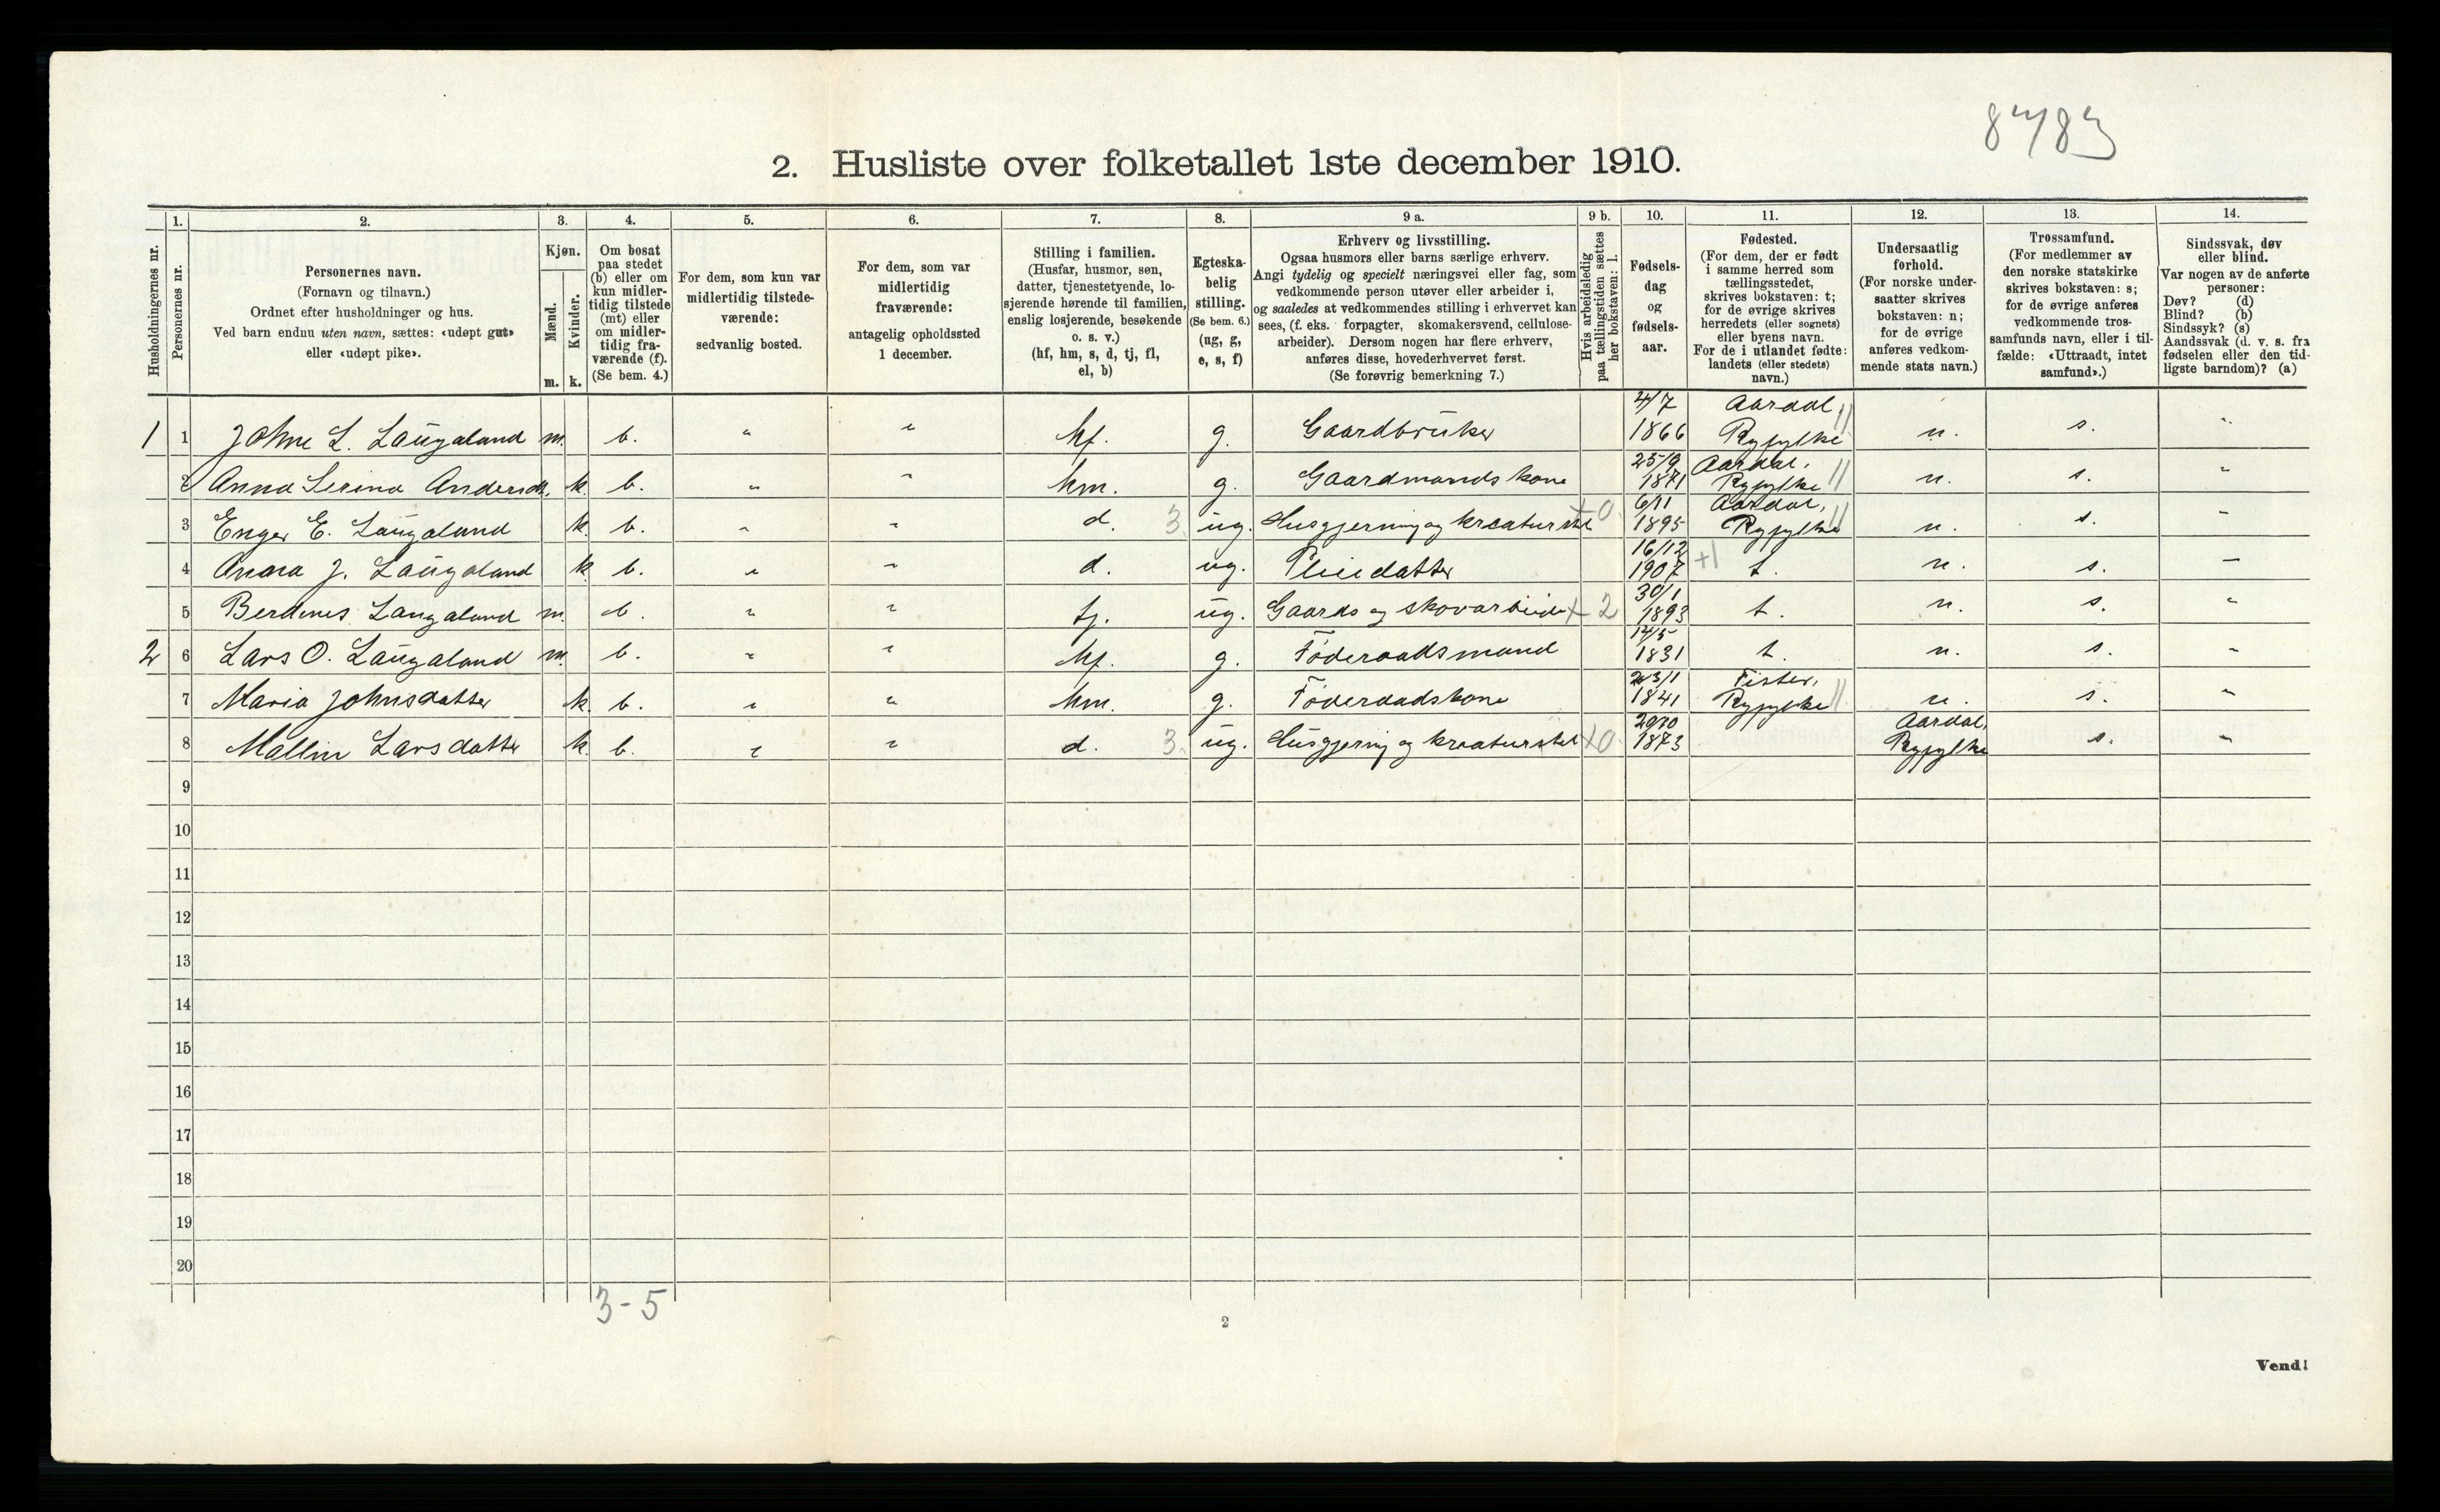 8783
2. Husliste over folketallet 1ste december 1910.
Husholdningernes nr.
1. Personernes nr.
2. Personernes navn.
(Fornavn og tilnavn.)
Ordnet efter husholdninger og hus.
Ved barn endnu uten navn, sættes: «udøpt gut»
eller «udøpt pike».
3. Kjøn.
Mænd. m.
Kvinder. k.
4. Om bosat
paa stedet
(b) eller om
kun midler-
tidig tilstede
(mt) eller
om midler-
tidig fra-
værende (f).
(Se bem. 4.)
5. For dem, som kun var
midlertidig tilstede-
værende:
sedvanlig bosted.
6. For dem, som var
midlertidig
fraværende:
antagelig opholdssted
1 december.
7. Stilling i familien.
(Husfar, husmor, søn,
datter, tjenestetyende, lo-
sjerende hørende til familien,
enslig losjerende, besøkende
o. s. v.)
(hf, hm, s, d, tj, fl,
el, b)
8. Egteska-
belig
stilling.
(Se bem. 6.)
(ug, g,
e, s, f)
9 a. Erhverv og livsstilling.
Ogsaa husmors eller barns særlige erhverv.
Angi tydelig og specielt næringsvei eller fag, som
vedkommende person utøver eller arbeider i,
og saaledes at vedkommendes stilling i erhvervet kan
sees, (f. eks. forpagter, skomakersvend, cellulose-
arbeider). Dersom nogen har flere erhverv,
anføres disse, hovederhvervet først.
(Se forøvrig bemerkning 7.)
9 b. Hvis arbeidsledig
paa tællingstiden sættes
her bokstaven: l.
10. Fødsels-
dag
og
fødsels-
aar.
11. Fødested.
(For dem, der er født
i samme herred som
tællingsstedet,
skrives bokstaven: t;
for de øvrige skrives
herredets (eller sognets)
eller byens navn.
For de i utlandet fødte:
landets (eller stedets)
navn.)
12. Undersaatlig
forhold.
(For norske under-
saatter skrives
bokstaven: n;
for de øvrige
anføres vedkom-
mende stats navn.)
13. Trossamfund.
(For medlemmer av
den norske statskirke
skrives bokstaven: s;
for de øvrige anføres
vedkommende tros-
samfunds navn, eller i til-
fælde: «Uttraadt, intet
samfund».)
14. Sindssvak, døv
eller blind.
Var nogen av de anførte
personer:
Døv? (d)
Blind? (b)
Sindssyk? (s)
Aandssvak (d. v. s. fra
fødselen eller den tid-
ligste barndom)? (a)
1 1 Johne L. Laugaland m. b. " " hf. g. Gaardbruker 4/7 1866 Aardal, Ryfylke n. s. "
2 Anna Serina Andersdt. k. b. " " hm. g. Gaardmandskone 25/9 1871 Aardal, Ryfylke n. s. "
3 Enger E. Laugaland k. b. " " d. 3 ug. Husgjerning og kreaturstel +0 6/11 1895 Aardal, Ryfylke n. s. "
4 Anna J. Laugaland k b. " " d. ug. Pleiedatter 16/12 1907 +1 t. n. s. "
5 Berdines Laugaland m. b. " " tj. ug. Gaards og skovarbeider +2 30/1 1893 t. n. s. "
2 6 Lars O. Laugaland m. b. " " hf. g. Föderaadsmand 14/5 1831 t. n. s. "
7 Maria Johnsdatter k. b. " " hm. g. Föderaadskone 23/1 1841 Fister, Ryfylke n. s. "
8 Mallin Larsdatter k. b. " " d. 3. ug. Husgjerning og kreaturstel +0 20/10 1873 Aardal, Ryfylke s. "
9
10
11
12
13
14
15
16
17
18
19
20
3-5
2
Vend!